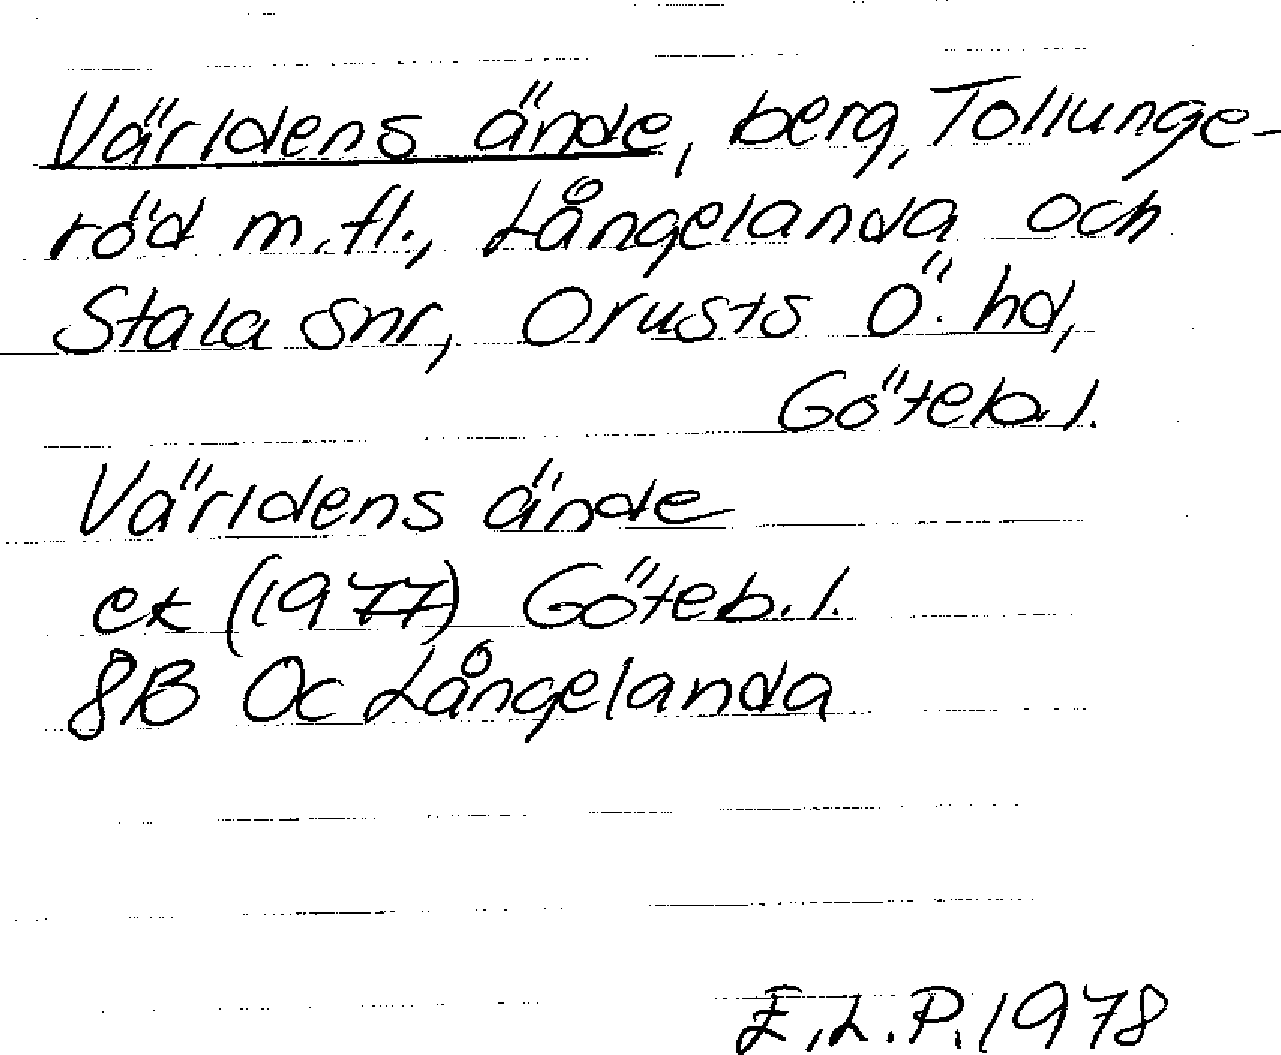 Världens ände, berg, Tollunge-
röd m.fl., Långelanda och
Stala snr, Orusts Ö. hd,
Göteb.l.
Världens ände
ek (1977) Göteb.l.
8B 0c Långelanda
E.L.P. 1978